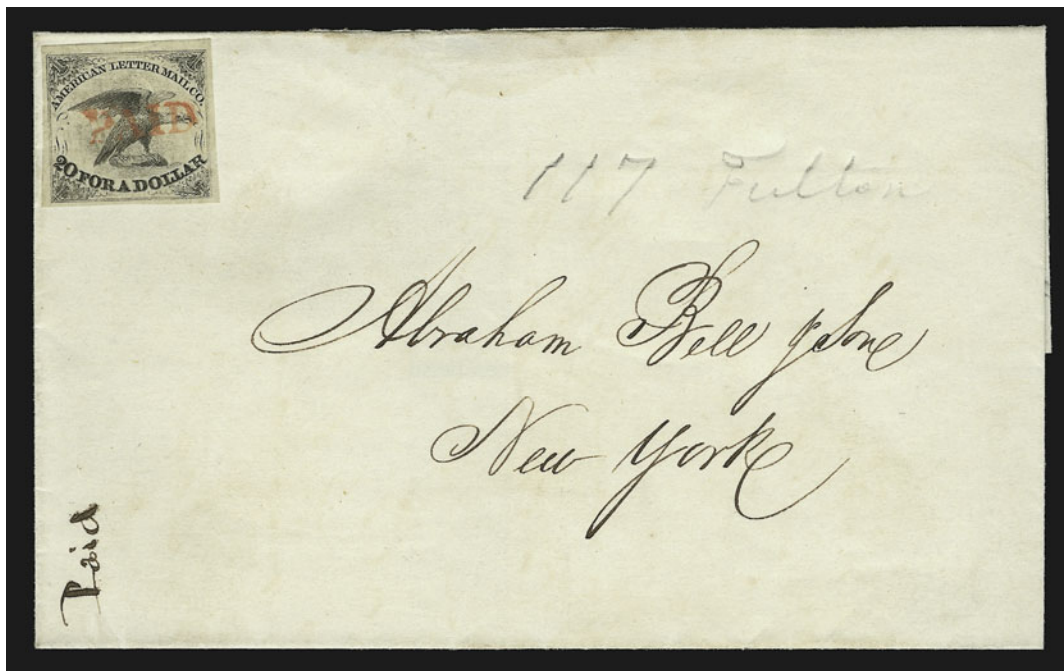 AMERICAN LETTER MAIL CO.
PAID
20 FOR A DOLLAR
117 Fulton
Abraham Bell & Son
New York
Paid